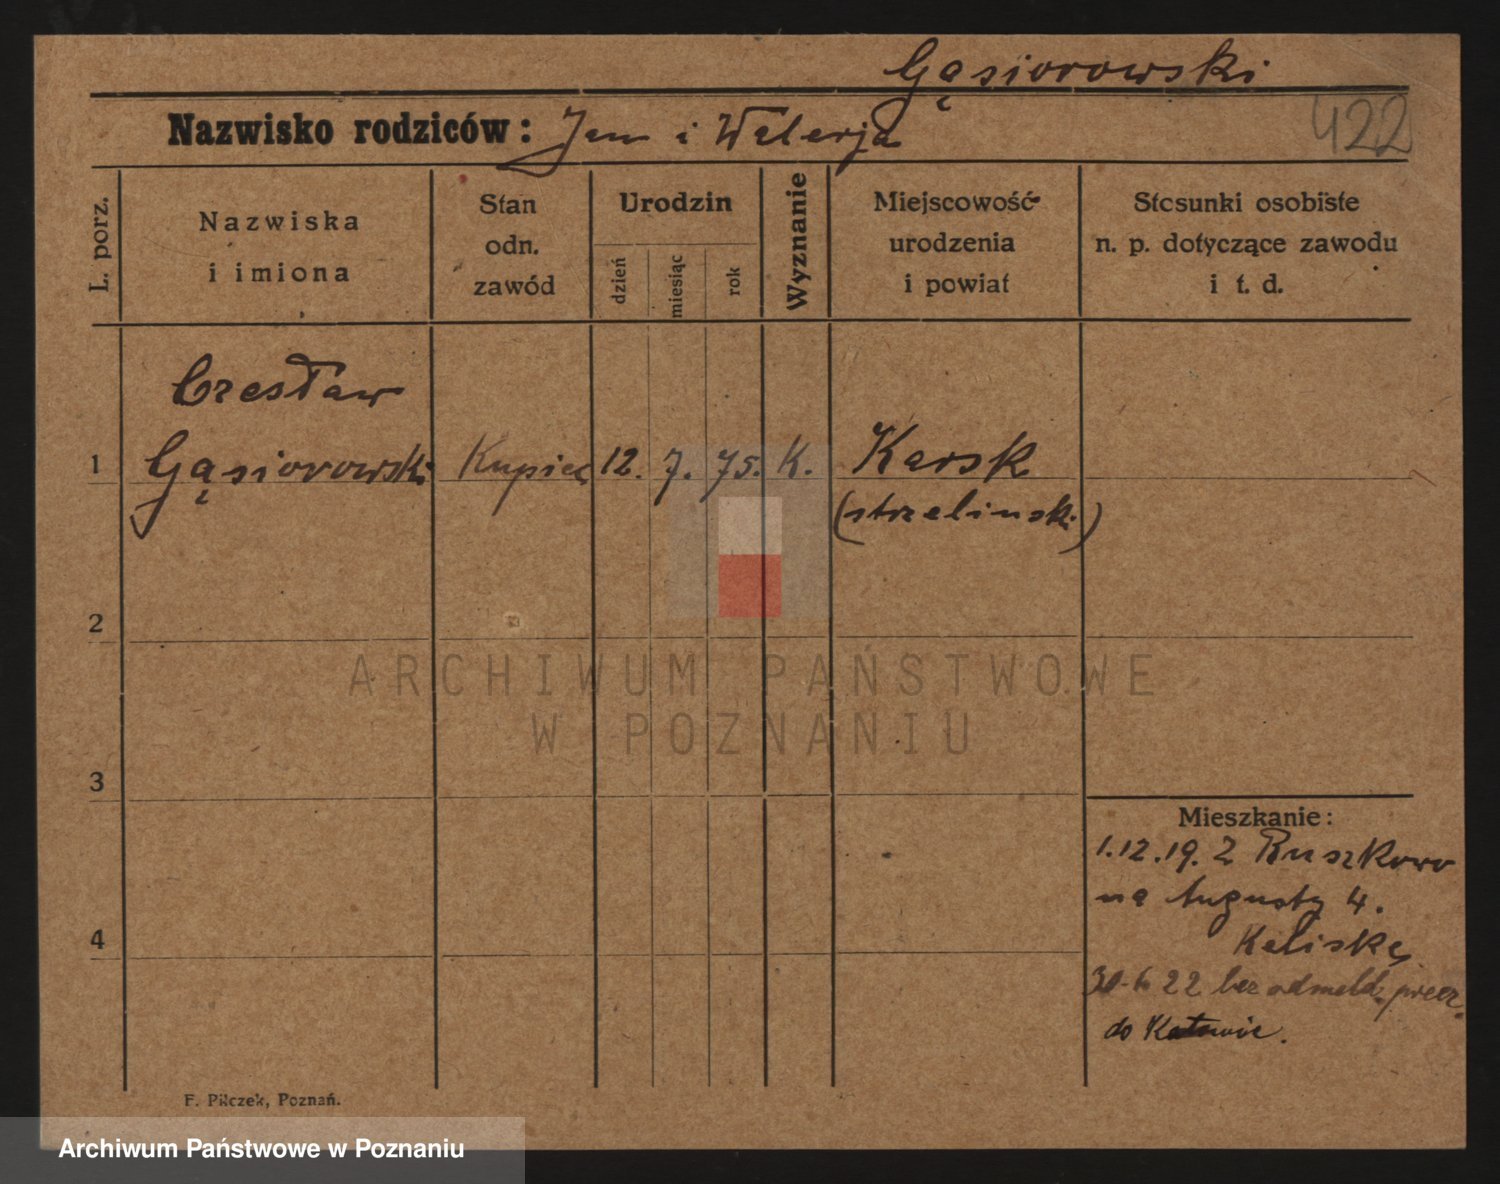 Gąsiorowski
Nazwisko rodziców: Jan i Walerja
422
L. porz.
Nazwiska
i imiona
Stan
odn.
zawód
Urodzin
dzień
miesiąc
rok
Wyznanie
Miejscowość
urodzenia
i powiat
Stosunki osobiste
n. p. dotyczące zawodu
i t. d.
Czesław
1 Gąsiorowski Kupiec 12. 7. 75. K. Karsk
(strzelinsk.)
2
3
4
Mieszkanie:
1.12.19. Z Ruszkowo
na Augusty 4.
Kaliska
30.6 22 bez odmeld.
do Katowic.
F. Pilczek, Poznań.
ARCHIWUM PAŃSTWOWE
W POZNANIU
Archiwum Państwowe w Poznaniu